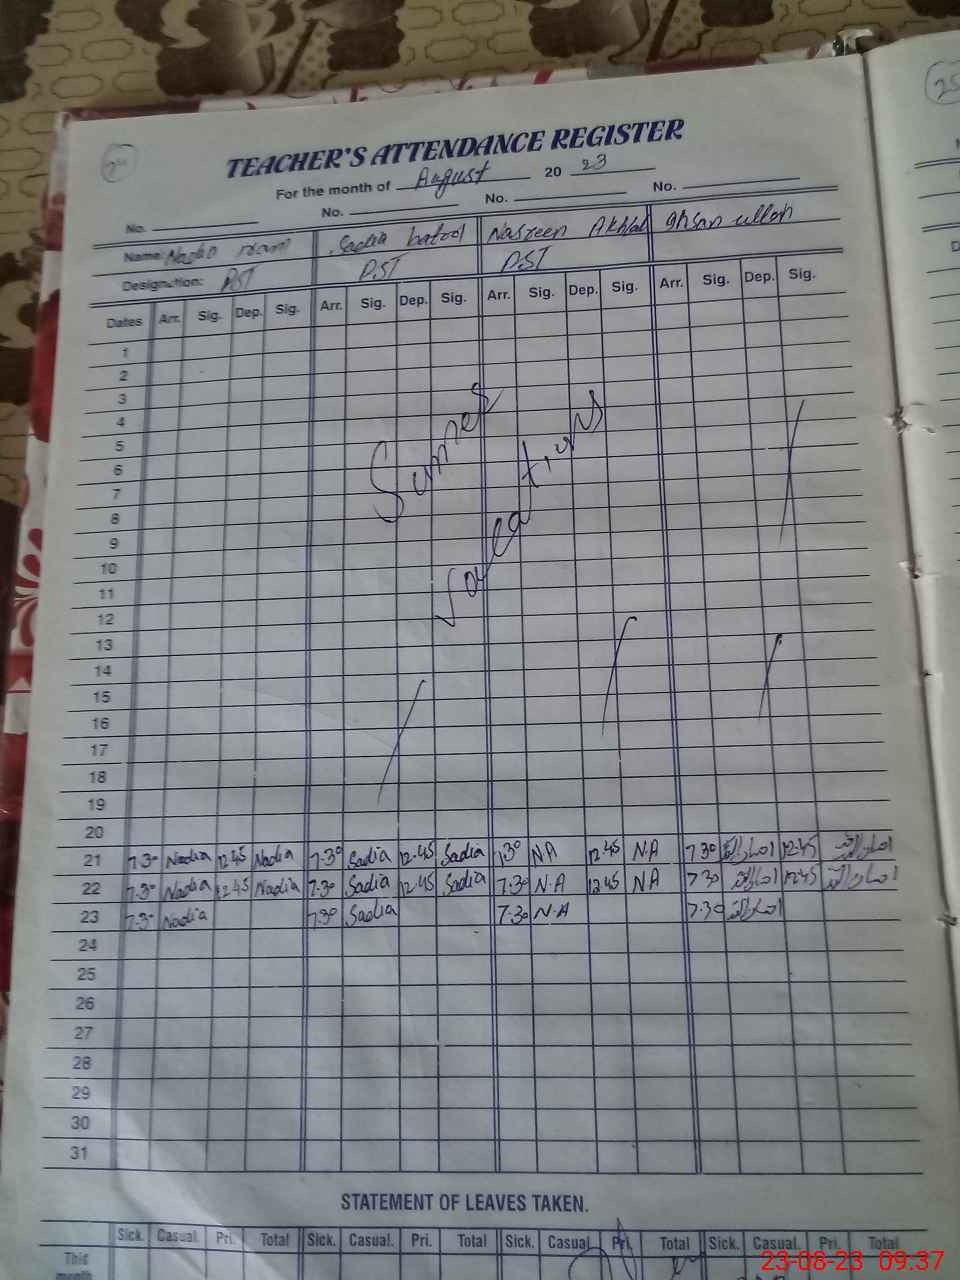 24
25
TEACHER'S ATTENDANCE REGISTER
For the month of August 2023
No. No. No. No.
Name: Nadia Sadia batool Nasreen Akhtar Ahsan ullah
Designation: PST P.ST P.ST
Dates Arr. Sig. Dep. Sig. Arr. Sig. Dep. Sig. Arr. Sig. Dep. Sig. Arr. Sig. Dep. Sig.
1
2
3
4
5
6
7
8
9
10
11
12
13
14
15
16
17
18
19
20
Sumer
vacations
21 7.30 Nadia 12 45 Nadia 7.30 Sadia 12.45 Sadia 7.30 NA 12 45 N.A 7 30 12.45
22 7.30 Nadia 12 45 Nadia 7.30 Sadia 12.45 Sadia 7.30 N.A 12 45 NA 7 30 12.45
23 7.30 Nadia 7.30 Sadia 7.30 N.A 7.30
24
25
26
27
28
29
30
31
STATEMENT OF LEAVES TAKEN.
Sick. Casual. Pri. Total Sick. Casual. Pri. Total Sick. Casual Pri. Total Sick. Casual. Pri. Total
This
month
23-08-23 09:37